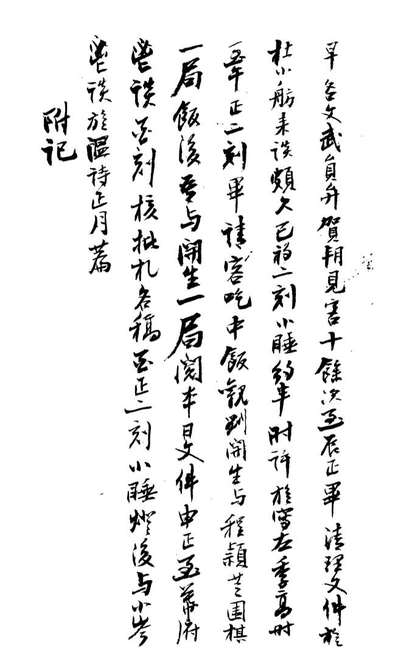 早各文武員弁賀朔見客十餘次至辰正畢清理文件旋
杜小舫来談頗久巳初二刻小睡約半時許旋寫左季高
午正二刻畢請客吃中飯觀劉開生与程穎芝圍棋
一局飯後吾与開生一局閱本日文件申正至幕府
鬯談酉刻核批札各稿酉正二刻小睡燈後与小岑
鬯談旋溫詩正月篇
附记